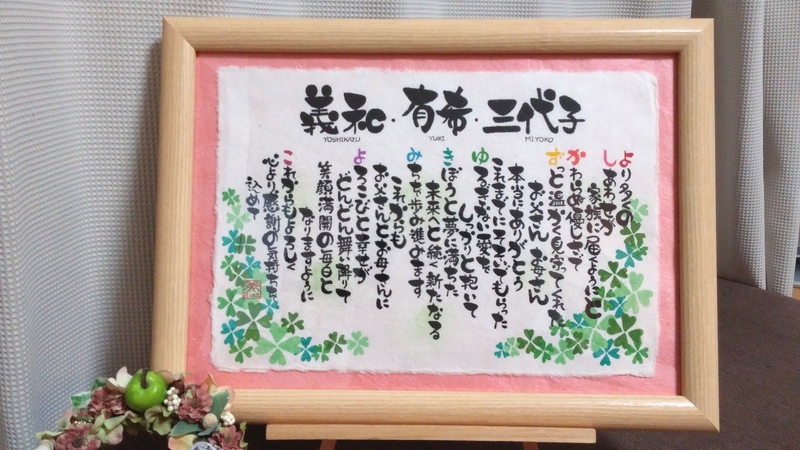 義和・有希・三代子
YOSHIKAZU YUKI MIYOKO
より多くの
しあわせが
家族に届くようにと
かわらぬ優しさで
ずっと温かく見守ってくれた
お父さん お母さん
本当にありがとう
これまでにそそいでもらった
ゆるぎない愛を
しっかりと抱いて
きぼうと夢に満ちた
未来へと続く新たなる
みちを歩み進みます
これからも
お父さんとお母さんに
よろこびと幸せが
どんどん舞い降りて
笑顔満開の毎日と
なりますように
これからもよろしく
心より感謝の気持ちを
込めて